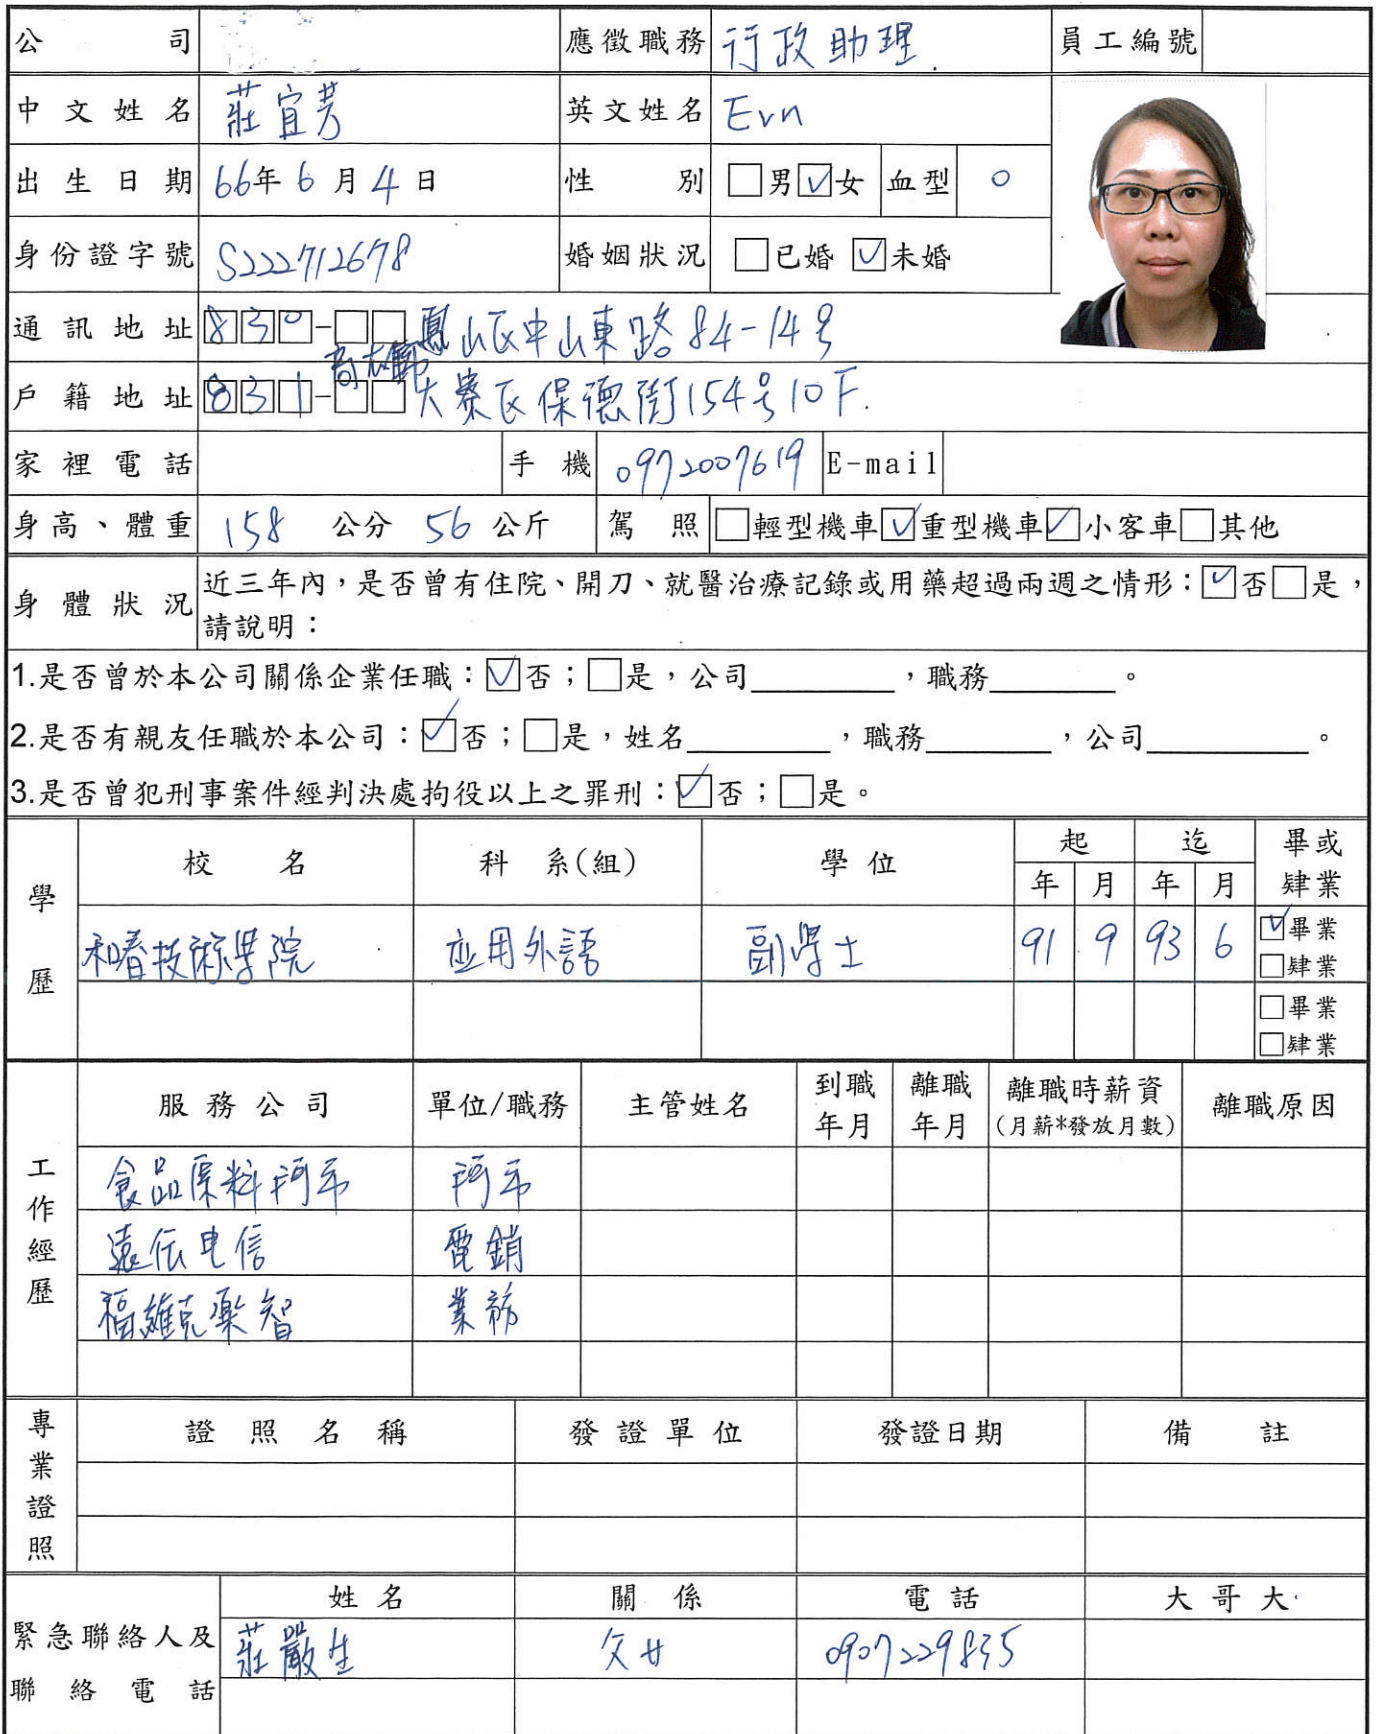 公司 應徵職務 行政助理. 員工編號
中文姓名 莊宜芳 英文姓名 Evn
出生日期 66年6月4日 性別 □男☑女 血型 O
身份證字號 S222712678 婚姻狀況 □已婚 ☑未婚
通訊地址 830-□□ 鳳山區中山東路84-14号
高雄鄉
戶籍地址 831-□□ 大寮区保德街154号10F.
家裡電話 手機 0972007619 E-mail
身高、體重 158 公分 56 公斤 駕照 □輕型機車☑重型機車☑小客車□其他
身體狀況 近三年內，是否曾有住院、開刀、就醫治療記錄或用藥超過兩週之情形：☑否□是，
請說明：
1.是否曾於本公司關係企業任職：☑否；□是，公司________，職務_______。
2.是否有親友任職於本公司：☑否；□是，姓名________，職務_______，公司_________。
3.是否曾犯刑事案件經判決處拘役以上之罪刑：☑否；□是。
學歷 校名 科系(組) 學位 起 迄 畢或肄業
年 月 年 月
和春技術學院 应用外語 副學士 91 9 93 6 ☑畢業
□肄業
□畢業
□肄業
工作經歷 服務公司 單位/職務 主管姓名 到職年月 離職年月 離職時薪資(月薪*發放月數) 離職原因
食品原料
遠伝电信 電銷
福維克樂智 業務
專業證照 證照名稱 發證單位 發證日期 備註
緊急聯絡人及聯絡電話 姓名 關係 電話 大哥大
莊嚴生 父女 0907229835